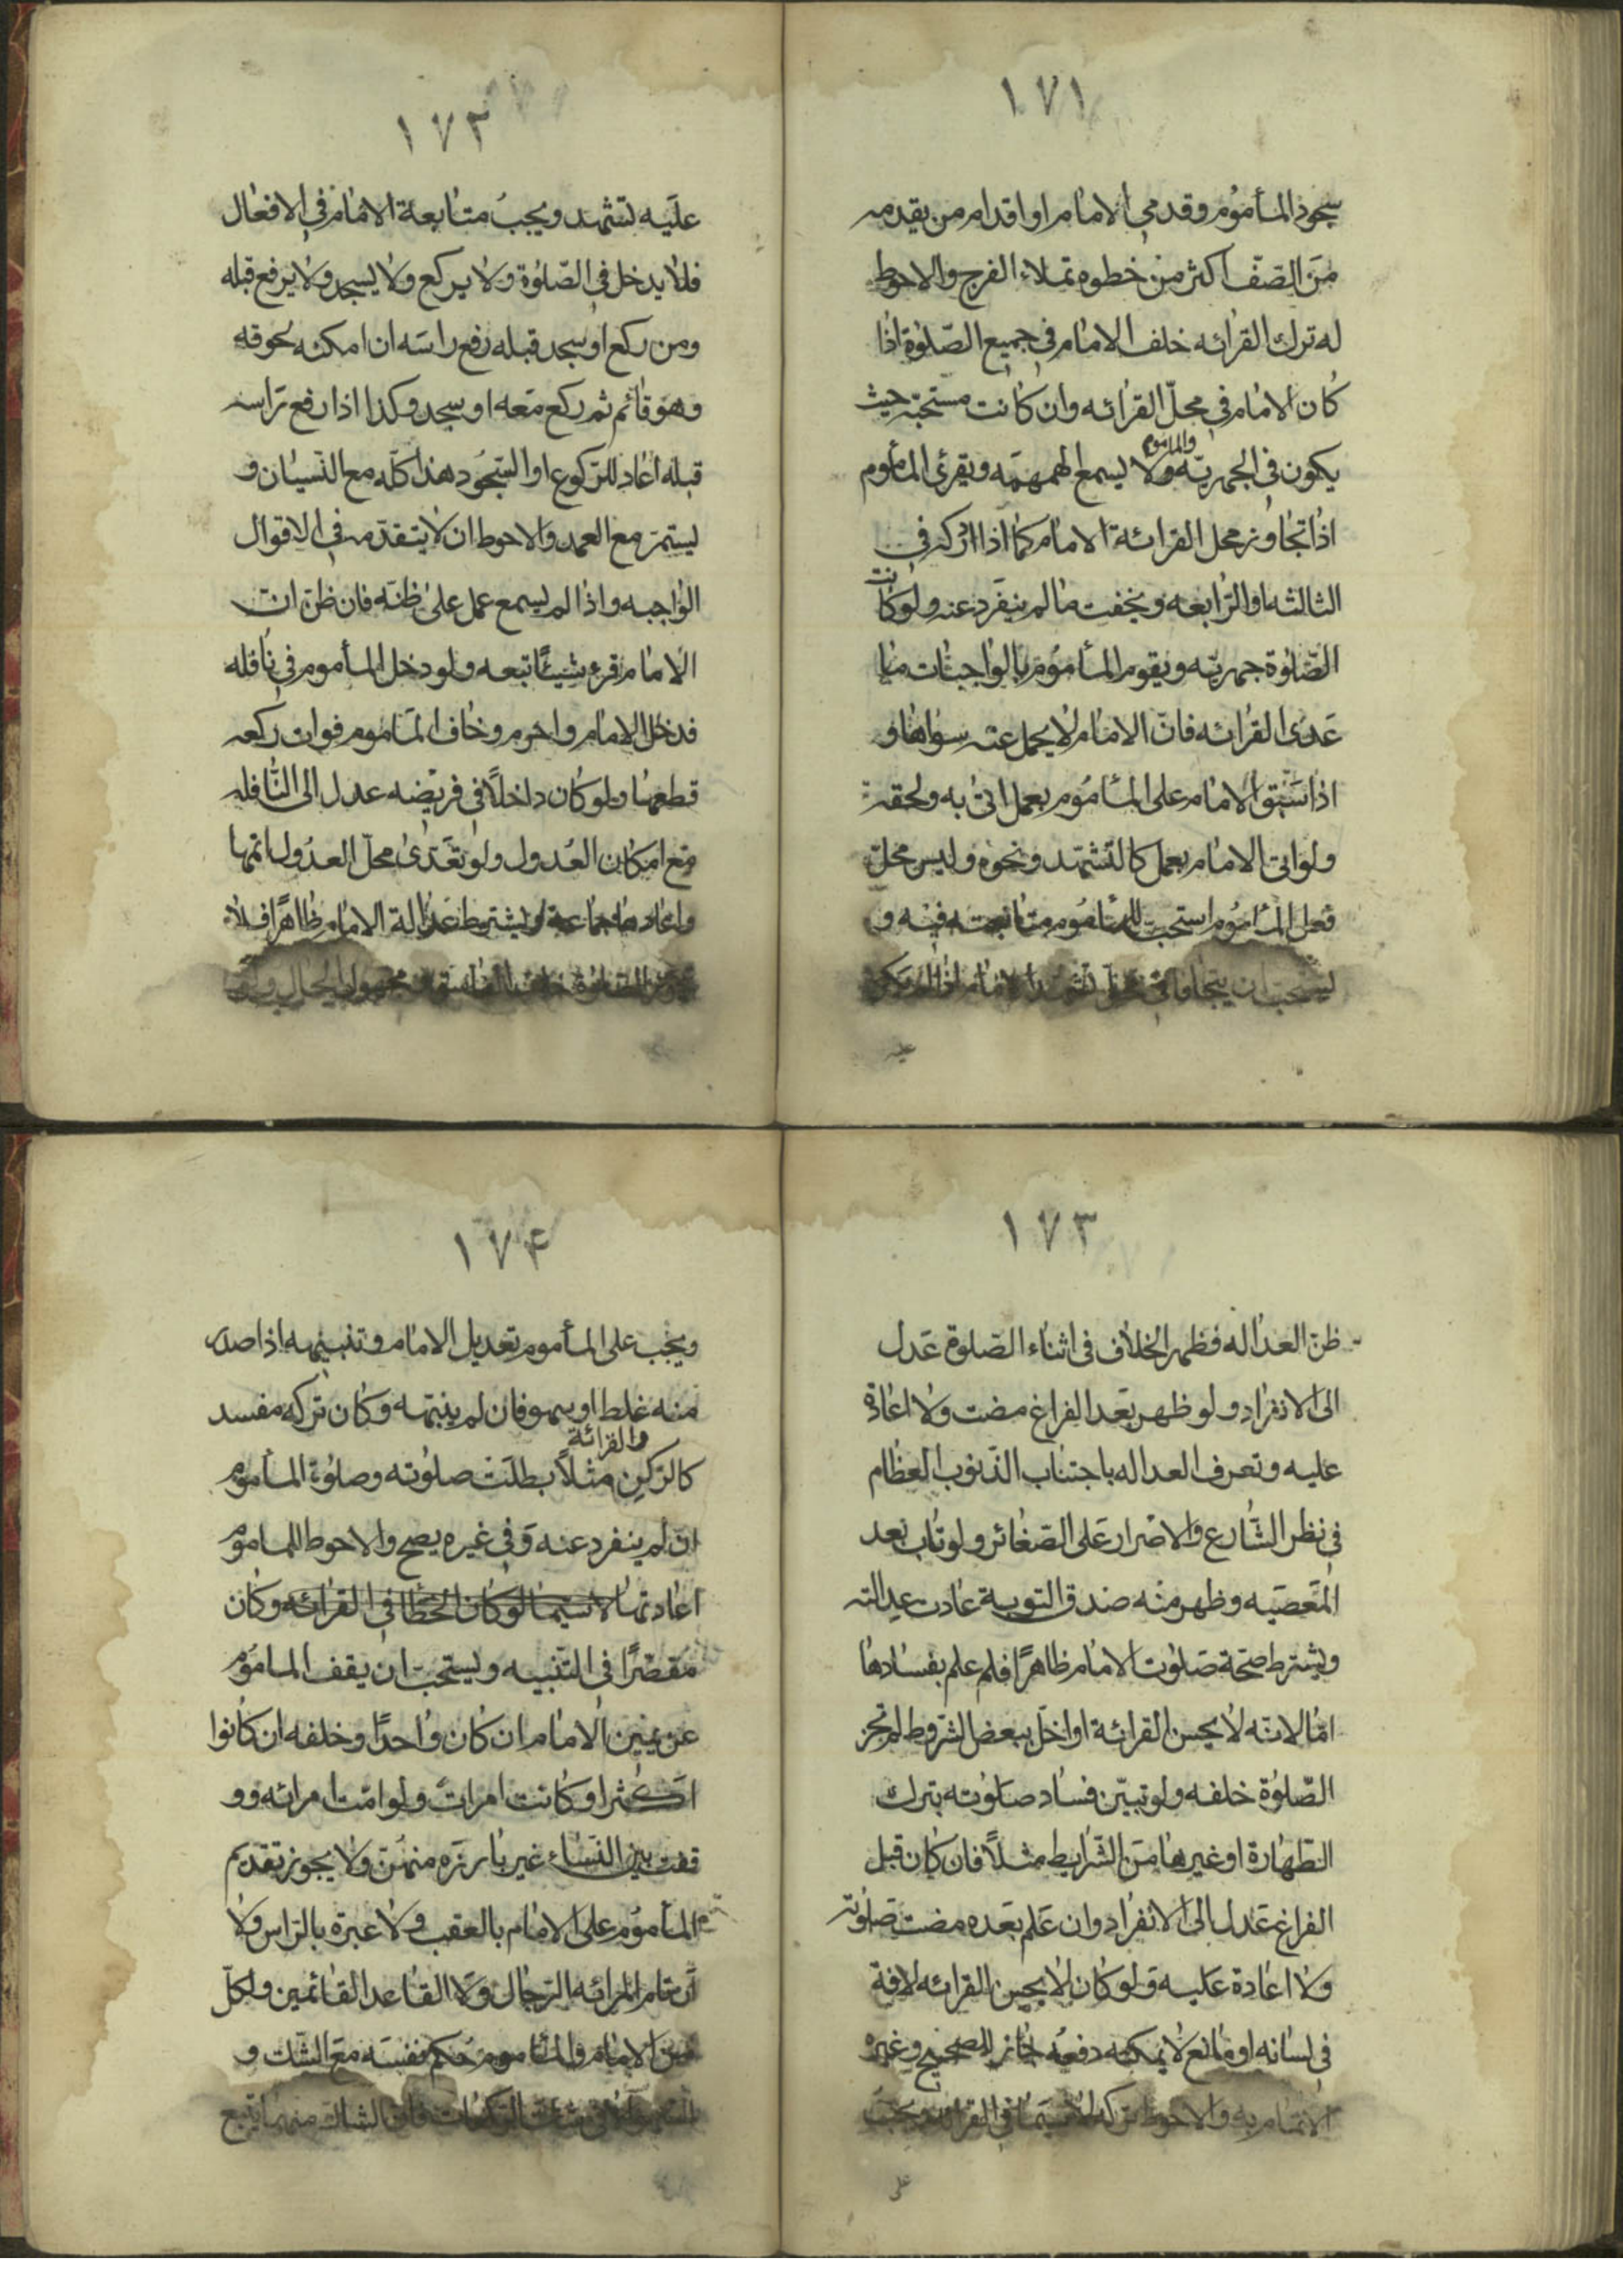 ١٧١
سجود المأموم وقدمي الامام او اقدام من يقدمه
من الصّف اكثر من خطوه تملاء الفرج والاحوط
له ترك القرائه خلف الامام في جميع الصّلوة اذا
كان الامام في محلّ القرائه وان كانت مستحبّه حيث
يكون في الجهريّه والمأموم لا يسمع الهمهمّه ويقرئ المأموم
اذا تجاوز محل القرائة الامام كما اذا ادركه في
الثالثه او الرّابعه ويخفت ما لم ينفرد عنه ولو كانت
الصّلوة جهريّه ويقوم المأموم بالواجبات ما
عدى القرائه فانّ الامام لا يحمل عنه سواها و
اذا سبق الامام على المأموم بعمل اتى به ولحقه
ولو اتى الامام بعمل كالتشهّد ونحوه وليس محلّ
فعل المأموم استحبّ للمأموم متابعته فيه و
يستحب ان يتجافا في تشهد الامام اذا لم يكن
عليه
١٧٢
عليه تشهد ويجب متابعة الامام في الافعال
فلا يدخل في الصّلوة ولا يركع ولا يسجد ولا يرفع قبله
ومن ركع او سجد قبله رفع راسه ان امكنه لحوقه
وهو قائم ثم ركع معه او سجد وكذا اذا رفع راسه
قبله اعاد للركوع او السّجود هذا كلّه مع النّسيان و
يستمر مع العمد والاحوط ان لا يتقدّمه في الاقوال
الواجبه واذا لم يسمع عمل على ظنّه فان ظنّ انّ
الامام قرء شيئًا تبعه ولو دخل المأموم في نافله
فدخل الامام واحرم وخاف المأموم فوات ركعه
قطعها ولو كان داخلاً في فريضه عدل الى النّافله
مع امكان العدول ولو تعدّى محلّ العدول اتمها
واعادها جماعة ويشترط عدالة الامام ظاهرًا فلا
الصلوة خلف مجهول الحال
١٧٣
ظن العداله فظهر الخلاف في اثناء الصّلوة عدل
الى الانفراد ولو ظهر بعد الفراغ مضت ولا اعادة
عليه وتعرف العداله باجتناب الذّنوب العظام
في نظر الشّارع والاصرار على الصّغائر ولو تاب بعد
المعصيه وظهر منه صدق التوبة عادت عدالته
ويشترط صحّة صلوت الامام ظاهرًا فلم علم بفسادها
امّا لانّه لا يحسن القرائة او اخلّ ببعض الشّروط لم تجز
الصّلوة خلفه ولو تبيّن فساد صلوته بترك
الطّهارة او غيرها من الشّرايط مثلاً فان كان قبل
الفراغ عدل الى الانفراد وان علم بعده مضت صلوته
ولا اعادة عليه ولو كان لا يحسن القرائه لافة
في لسانه او مانع لا يمكنه دفعه جاز للصحيح وغيره
الائتمام به والاحوط تركه لا سيّما في القرائه ويجب
على
١٧۴
ويجب على المأموم تعديل الامام وتنبيهه اذا صدر
منه غلط او سهو فان لم ينبّهه وكان تركه مفسد
كالركن والقرائة مثلاً بطلت صلوته وصلوة المأموم
ان لم ينفرد عنه وفي غيره يصح والاحوط للماموم
اعادتها لا سيّما لو كان الخطا في القرائه وكان
مقصّرًا في التّنبيه ويستحبّ ان يقف الماموم
عن يمين الامام ان كان واحدًا وخلفه ان كانوا
اكثر او كانت امراة ولو امّت امرائه وو
قفت بين النّساء غير بارزه منهنّ ولا يجوز تقديم
المأموم على الامام بالعقب ولا عبرة بالرّاس ولا
ان تمام المرائه الرّجال ولا القاعد القائمين ولكلّ
من الامام والمأموم حكم نفسه مع الشّك و
السهو الا في الركعات فان الشاك منهما يتبع